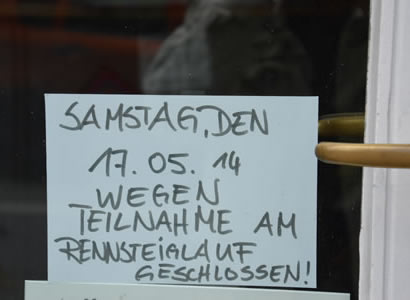 SAMSTAG, DEN
17.05.14
WEGEN
TEILNAHME AM
RENNSTEIGLAUF
GESCHLOSSEN!